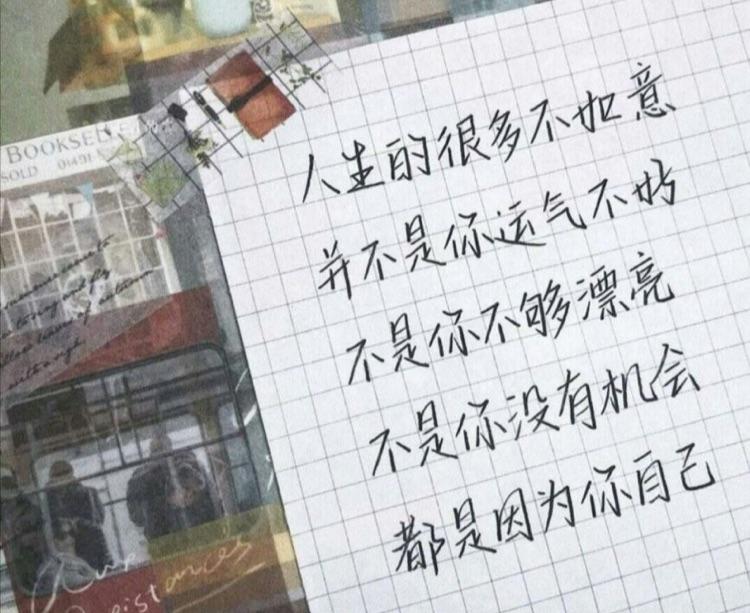 BOOKSELLE
SOLD 01491
人生的很多不如意
并不是你运气不好
不是你不够漂亮
不是你没有机会
都是因为你自己